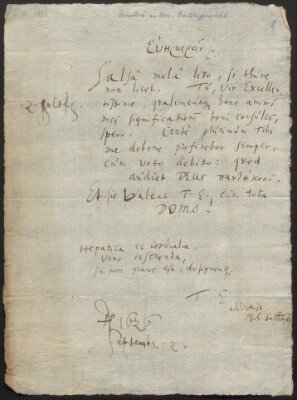 Εὐπράττειν
Salsâ molâ lito, si thure
non licet. Tu, Vir Excellen
tissime, hanc animi
mei significationem boni consules,
spero. Certè plurimum Tibi
me debere profitebor semper,
cum voto debito: quod
audiet DEUS
Et sic Valeat T. E. cum tota
DOMO.
Hepatica et cordialia,
Vino infundenda,
si non grave est,
T. E.
1626
Septembr. 2.